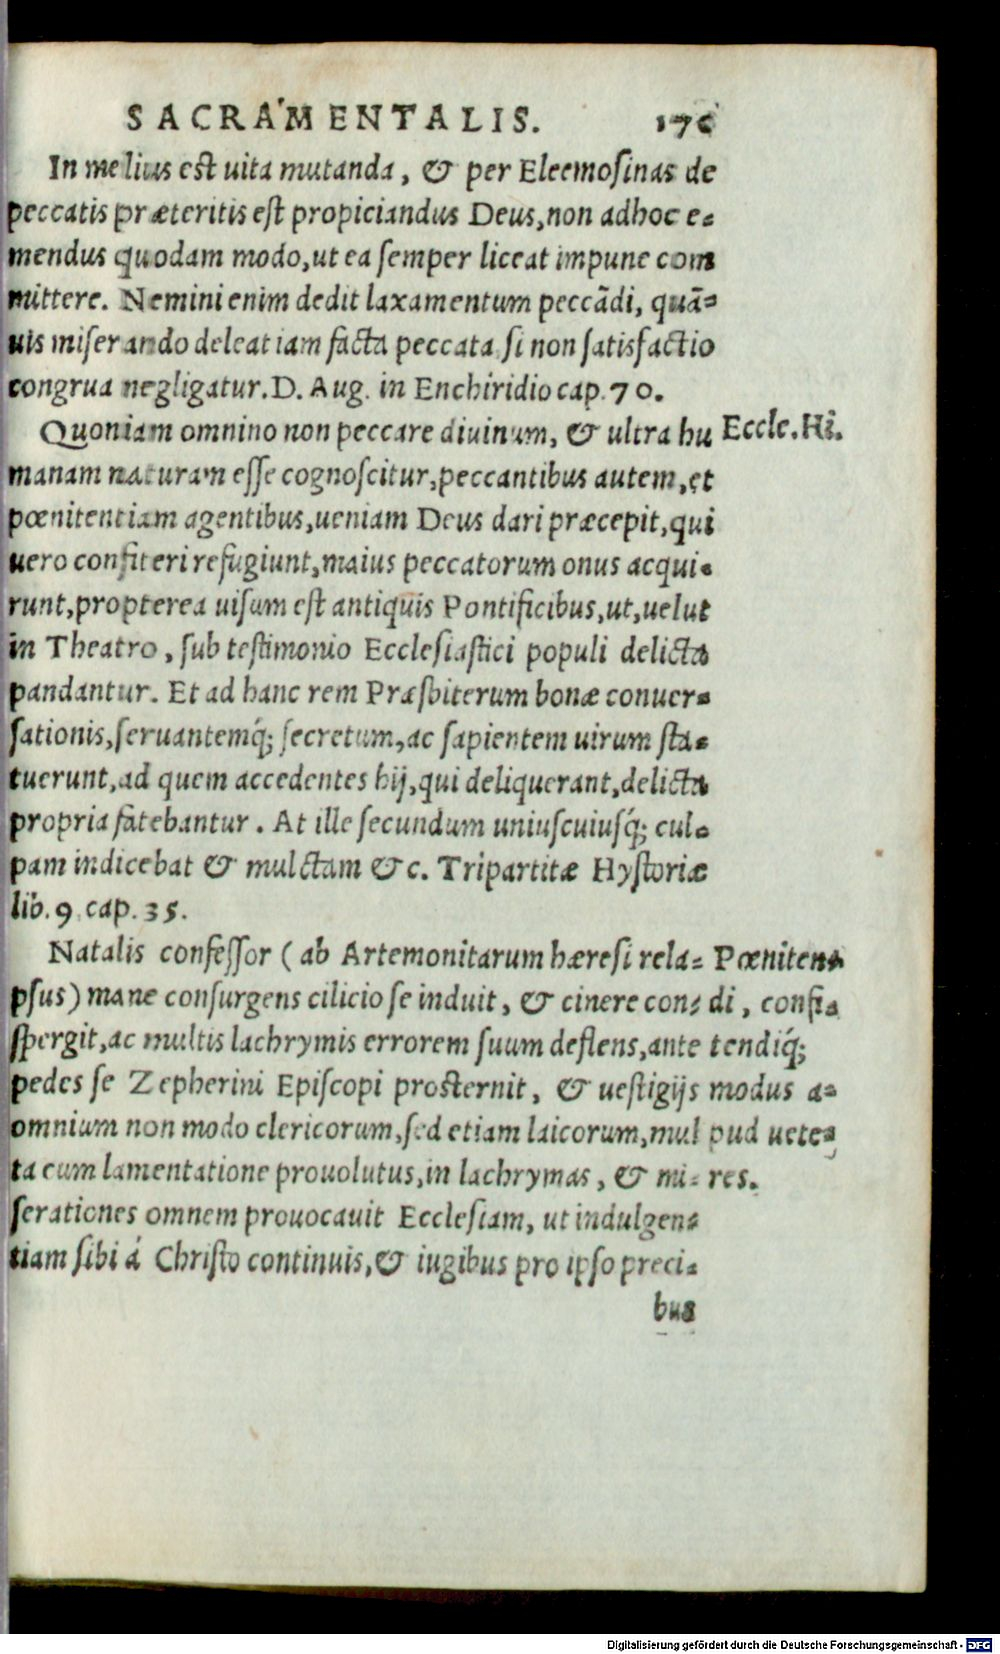 SACRAMENTALIS. 176
In melius est uita mutanda, & per Eleemosinas de
peccatis præteritis est propiciandus Deus, non adhoc e-
mendus quodam modo, ut ea semper liceat impune com
mittere. Nemini enim dedit laxamentum peccādi, quā-
uis miserando deleat iam facta peccata si non satisfactio
congrua negligatur. D. Aug. in Enchiridio cap. 70.
Quoniam omnino non peccare diuinum, & ultra hu
Eccle. Hi.
manam naturam esse cognoscitur, peccantibus autem, et
pœnitentiam agentibus, ueniam Deus dari præcepit, qui
uero confiteri refugiunt, maius peccatorum onus acqui-
runt, propterea uisum est antiquis Pontificibus, ut, uelut
in Theatro, sub testimonio Ecclesiastici populi delicta
pandantur. Et ad hanc rem Præsbiterum bonæ conuer-
sationis, seruantemq́; secretum, ac sapientem uirum sta-
tuerunt, ad quem accedentes hij, qui deliquerant, delicta
propria fatebantur. At ille secundum uniuscuiusq́; cul-
pam indicebat & mulctam & c. Tripartitæ Hystoriæ
lib. 9 cap. 35.
Natalis confessor (ab Artemonitarum hæresi rela-
psus) mane consurgens cilicio se induit, & cinere con-
spergit, ac multis lachrymis errorem suum deflens, ante
pedes se Zepherini Episcopi prosternit, & uestigijs
omnium non modo clericorum, sed etiam laicorum, mul
ta cum lamentatione prouolutus, in lachrymas, & mi-
serationes omnem prouocauit Ecclesiam, ut indulgen-
tiam sibi á Christo continuis, & iugibus pro ipso preci-
Pœniten-
di, confi-
tendiq́;
modus a-
pud uete-
res.
bus
Digitalisierung gefördert durch die Deutsche Forschungsgemeinschaft - DFG